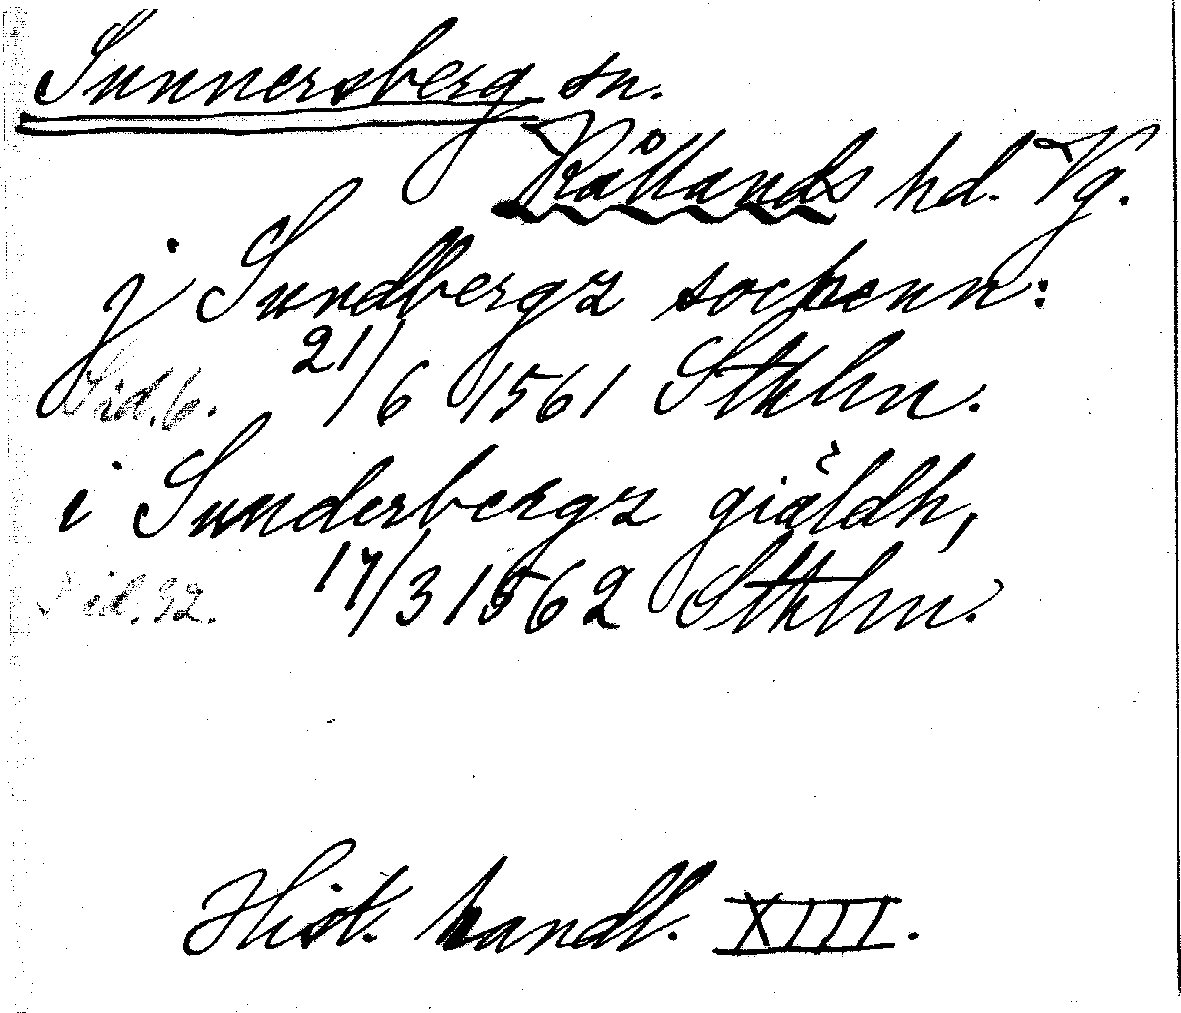 Sunnersberg sn.
Kållands hd. Vg.
j Sundbergz sochenn:
Sid. 6. 21/6 1561 Sthlm.
i Sunderbergz giäldh,
Sid. 92. 17/3 1562 Sthlm.
Hist. handl. XIII.